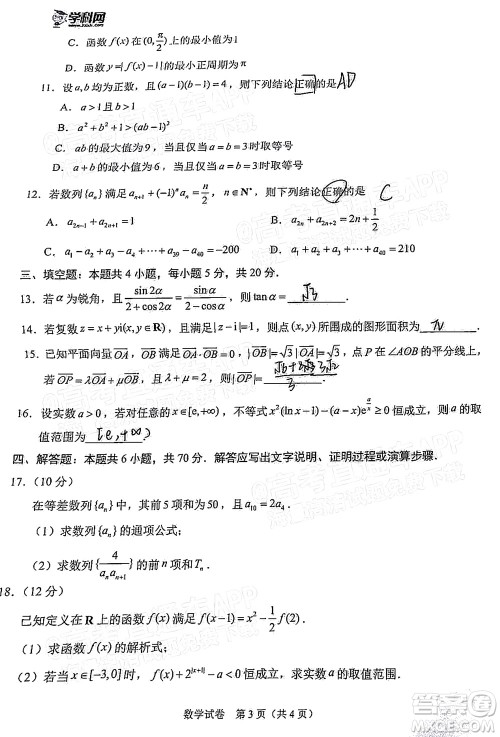 学科网
C. 函数 f(x) 在 (0, π/2) 上的最小值为 1
D. 函数 y=|f(x)-1| 的最小正周期为 π
11. 设 a,b 均为正数，且 (a-1)(b-1)=4，则下列结论正确的是 AD
A. a>1且b>1
B. a²+b²+1>(ab)²
C. ab 的最大值为 9，当且仅当 a=b=3 时取等号
D. a+b 的最小值为 6，当且仅当 a=b=3 时取等号
12. 若数列{aₙ}满足 aₙ₊₁+(-1)ⁿaₙ=n/2，n∈N*，则下列结论正确的是 C
A. a₂ₙ₋₁+a₂ₙ₊₁=1/2 B. a₂ₙ+a₂ₙ₊₂=2n+1/2
C. a₁-a₂+a₃-a₄+…+a₃₉-a₄₀=-200 D. a₁+a₂+a₃+…+a₄₀=210
三、填空题：本题共 4 小题，每小题 5 分，共 20 分．
13. 若α为锐角，且 sin2α/(2+cos2α)=sinα/(2cosα)，则 tanα= √3 ．
14. 若复数 z=x+yi(x,y∈R)，且满足|z-i|=1，则点(x,y)所围成的图形面积为 π ．
15. 已知平面向量OA，OB满足|OA|=√2，|OB|=√3，|OA-OB|=√3，点 P 在∠AOB的平分线上，
若OP=λOA+μOB，且λ+μ=2，则|OP|=
16. 设实数 a>0，若对任意的 x∈[e,+∞)，不等式 x²(lnx-1)-(a-x)e^(a/x)≥0 恒成立，则 a 的取
值范围为 [e,+∞)
四、解答题：本题共 6 小题，共 70 分．解答应写出文字说明、证明过程或演算步骤．
17.（10 分）
在等差数列{aₙ}中，其前 4 项的和为50，且 a₁₀=2a₄．
（1）求数列{aₙ}的通项公式；
（2）求数列{4/(aₙaₙ₊₁)}的前n项和Tₙ．
18.（12 分）
已知定义在 R 上的函数 f(x) 满足 f(x-1)=x²-1/2 f(2)．
（1）求函数 f(x) 的解析式；
（2）若当 x∈[-3,0] 时，f(x)+2^|x+1|-a<0 恒成立，求实数 a 的取值范围．
数学试卷 第 3 页（共 4 页）